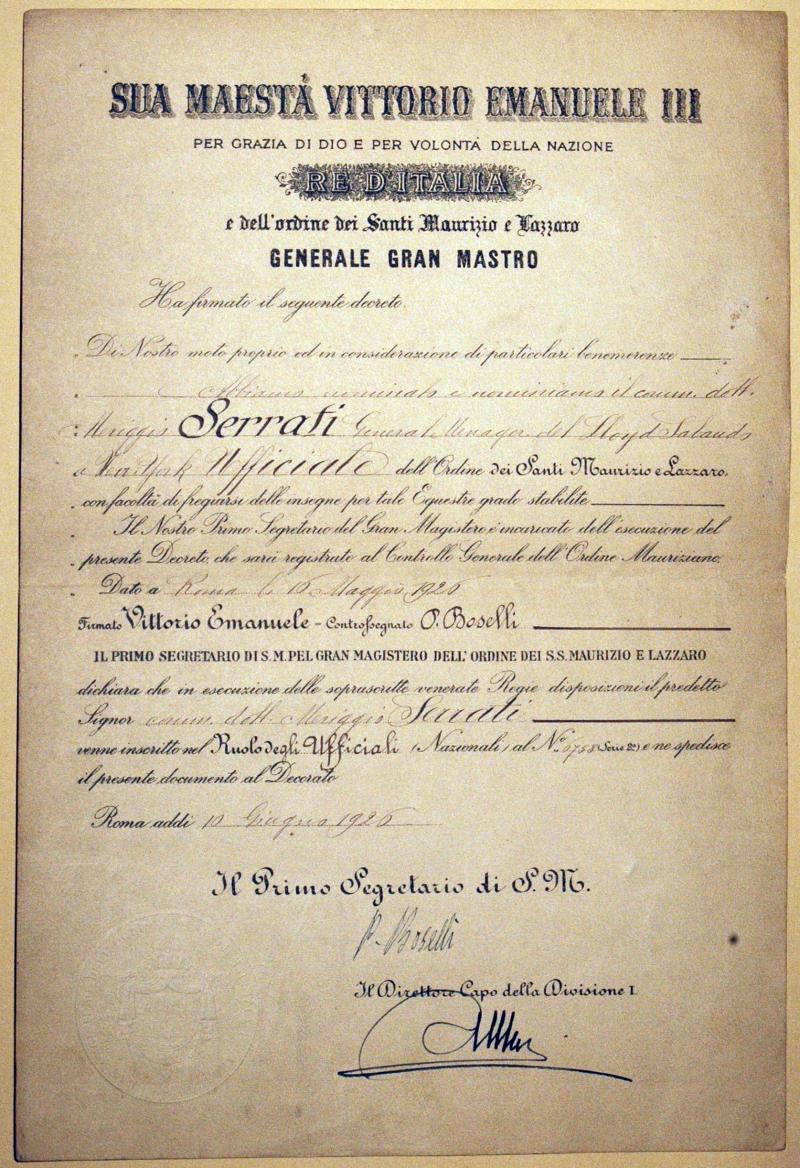 SUA MAESTÀ VITTORIO EMANUELE III
PER GRAZIA DI DIO E PER VOLONTÀ DELLA NAZIONE
RE D'ITALIA
e dell'ordine dei Santi Maurizio e Lazzaro
GENERALE GRAN MASTRO
Ha firmato il seguente decreto.
Di Nostro moto proprio ed in considerazione di particolari benemerenze
Abbiamo nominato e nominiamo il comm. dott.
Meriggio Serrati General Menager del Lloyd Sabaudo
a New York Ufficiale dell'Ordine dei Santi Maurizio e Lazzaro,
con facoltà di fregiarsi delle insegne per tale Equestre grado stabilite
Il Nostro Primo Segretario del Gran Magistero è incaricato dell'esecuzione del
presente Decreto, che sarà registrato al Controllo Generale dell'Ordine Mauriziano.
Dato a Roma li 16 Maggio 1926
Firmato Vittorio Emanuele - Controssegnato P. Boselli
IL PRIMO SEGRETARIO DI S. M. PEL GRAN MAGISTERO DELL'ORDINE DEI S.S. MAURIZIO E LAZZARO
dichiara che in esecuzione delle soprascritte venerate Regie disposizioni il predetto
Signor comm. dott. Meriggio Serrati
venne inscritto nel Ruolo degli Ufficiali (Nazionali) al N.° (Serie 2a) e ne spedisce
il presente documento al Decorato
Roma addì 10 Giugno 1926
Il Primo Segretario di S. M.
P. Boselli
Il Direttore Capo della Divisione I.